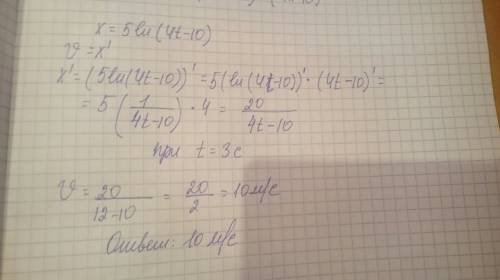 x = 5 ln (4t-10)
v = x'
x' = (5ln(4t-10))' = 5(ln(4t-10))' · (4t-10)' =
= 5 (1/(4t-10)) · 4 = 20/(4t-10)
при t = 3 с
v = 20/(12-10) = 20/2 = 10 м/с
Ответ: 10 м/с